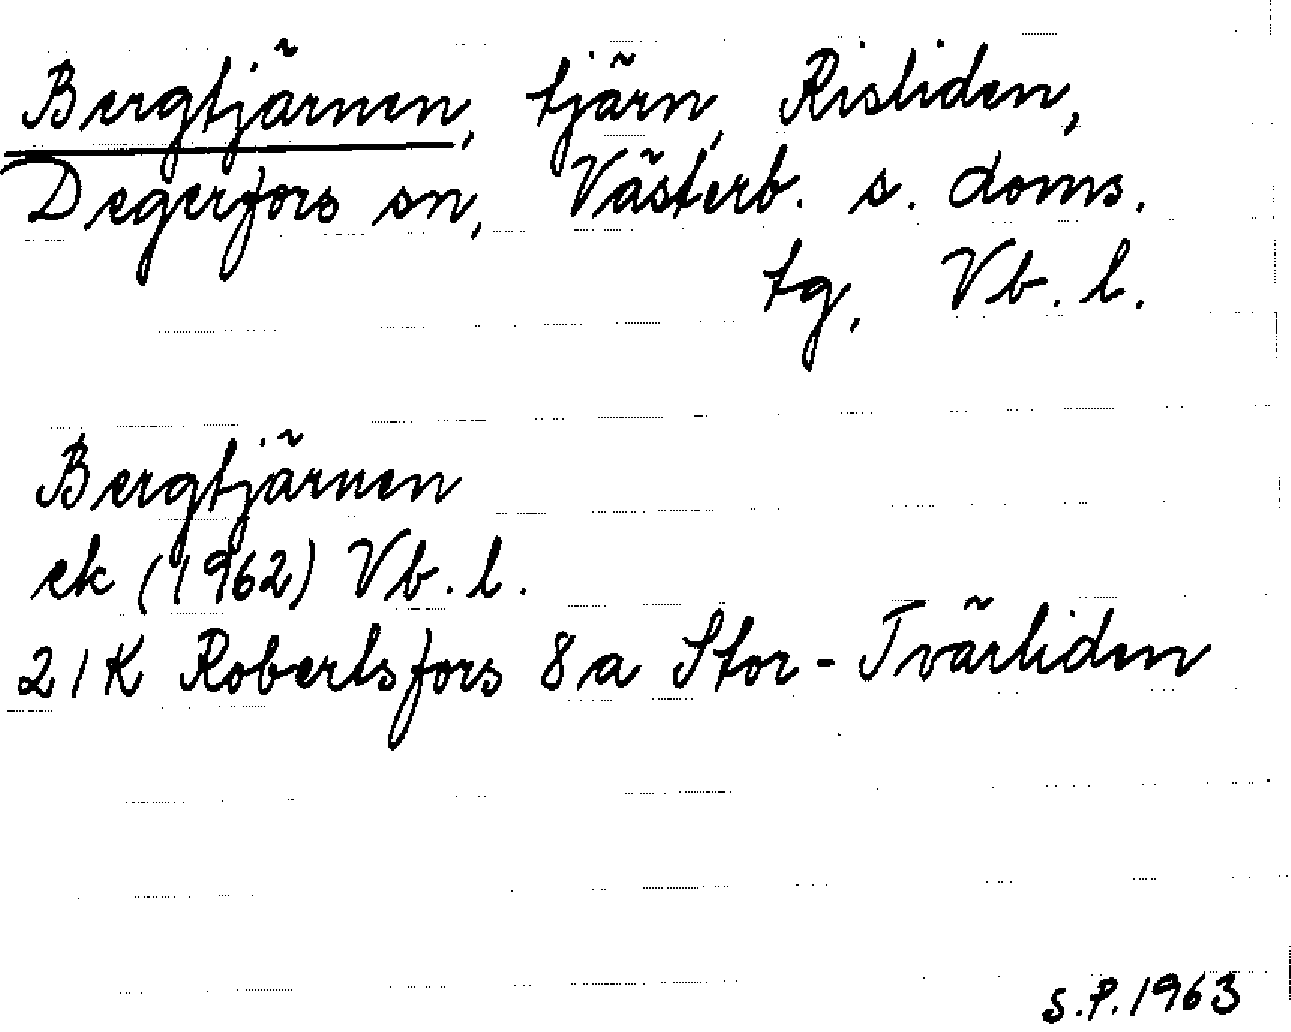 Bergtjärnen, tjärn, Risliden,
Degerfors sn, Västerb. s. doms.
tg, Vb. l.
Bergtjärnen
ek (1962) Vb. l.
21K Robertsfors 8a Stor-Tvärliden
S.P. 1963